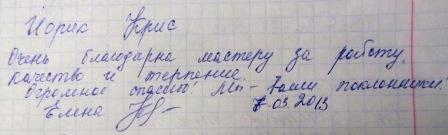 Йорик Крис
Очень благодарна мастеру за работу,
качество и терпение.
Огромное спасибо! Мы - Ваши поклонники!
Елена
7.03.2013